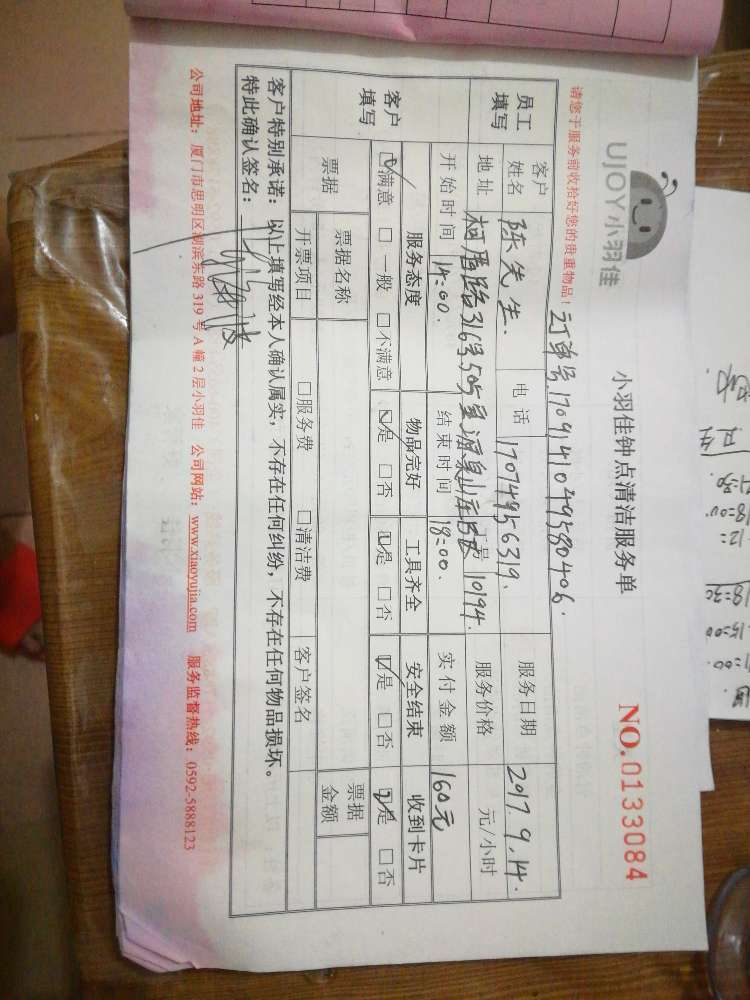 UJOY小羽佳
小羽佳钟点清洁服务单
NO.0133084
请您于服务前收拾好您的贵重物品！
订单号.1709141049580406.
员工填写
客户姓名 陈先生. 电话 17074956319. 服务日期 2017.9.14.
地址 316号505 10194. 服务价格 元/小时
开始时间 14:00. 结束时间 18:00. 实付金额 160元
客户填写
服务态度 物品完好 工具齐全 安全结束 收到卡片
☑满意 □一般 □不满意 ☑是 □否 ☑是 □否 ☑是 □否 ☑是 □否
票据 票据名称 票据金额
开票项目 □服务费 □清洁费 客户签名
客户特别承诺：以上填写经本人确认属实，不存在任何纠纷，不存在任何物品损坏。
特此确认签名：
公司地址：厦门市思明区湖滨东路 319 号 A 幢 2 层小羽佳 公司网站：www.xiaoyujia.com 服务监督热线：0592-5888123
18:00
12:
18:30
15:00